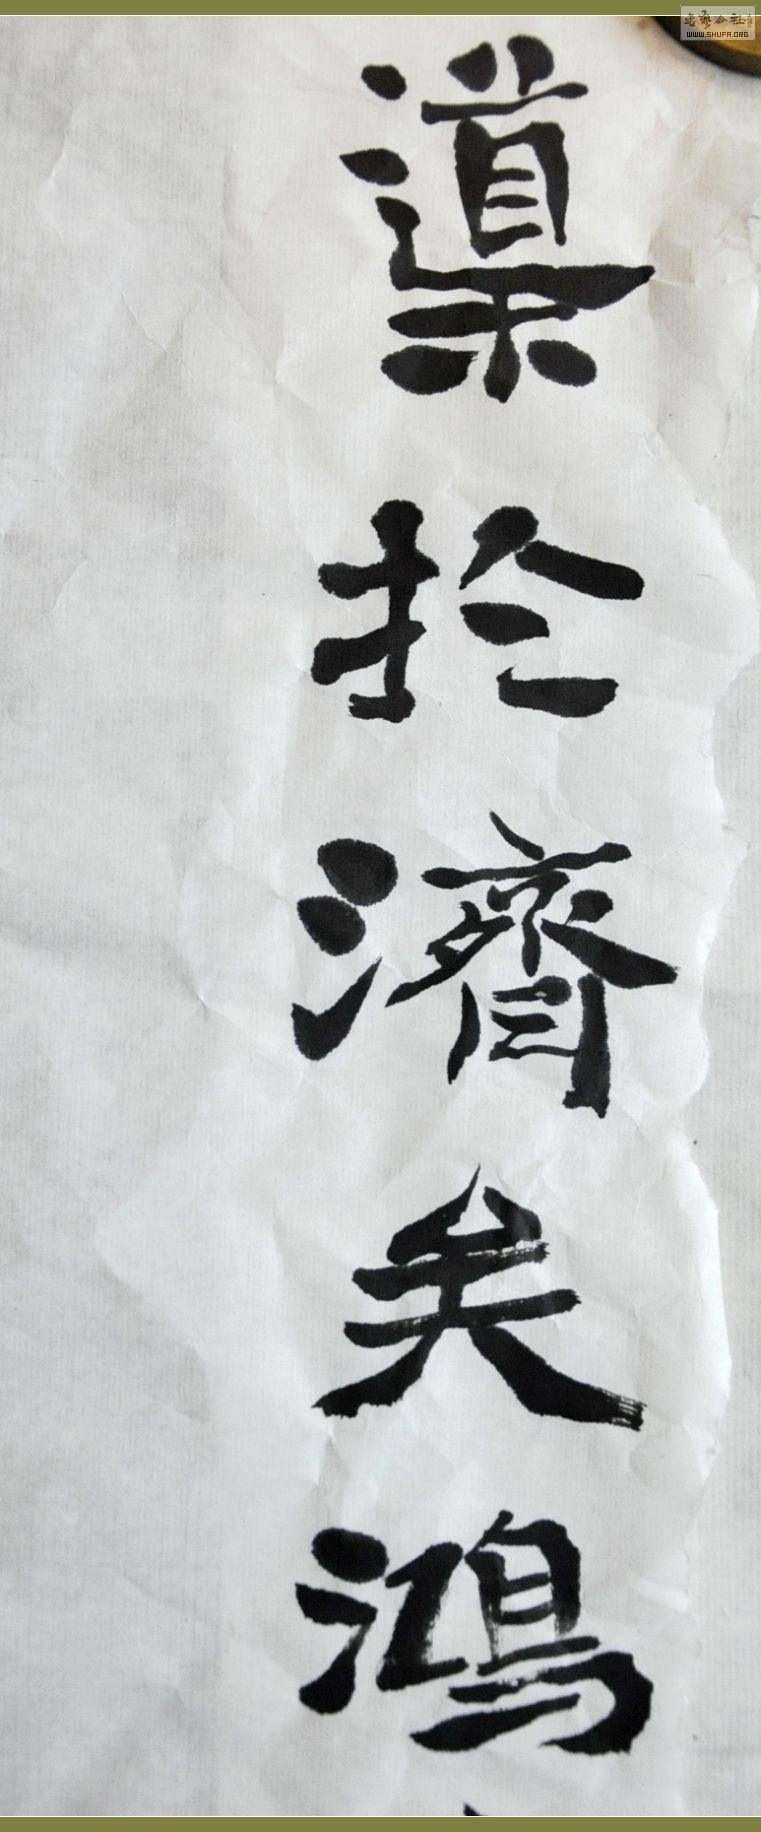 書藝公社
WWW.SHUFA.ORG
導扵濟矣鴻